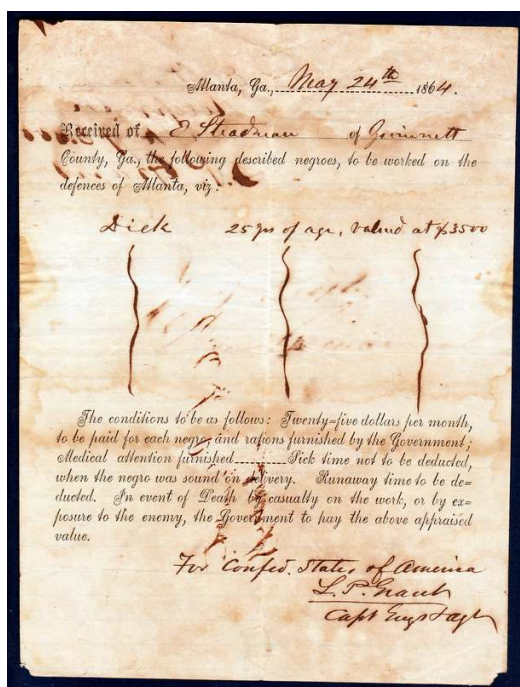 Atlanta, Ga., May 24th 1864.
Received of E Steadman of Gwinnett
County, Ga., the following described negroes, to be worked on the
defences of Atlanta, viz:
Dick 25 yrs of age, valued at $3500
The conditions to be as follows: Twenty=five dollars per month,
to be paid for each negro, and rations furnished by the Government;
Medical attention furnished Sick time not to be deducted,
when the negro was sound on delivery. Runaway time to be de=
ducted. In event of Death by casualty on the work, or by ex=
posure to the enemy, the Government to pay the above appraised
value.
For Confed. States of America
L. P. Grant
Capt Engs